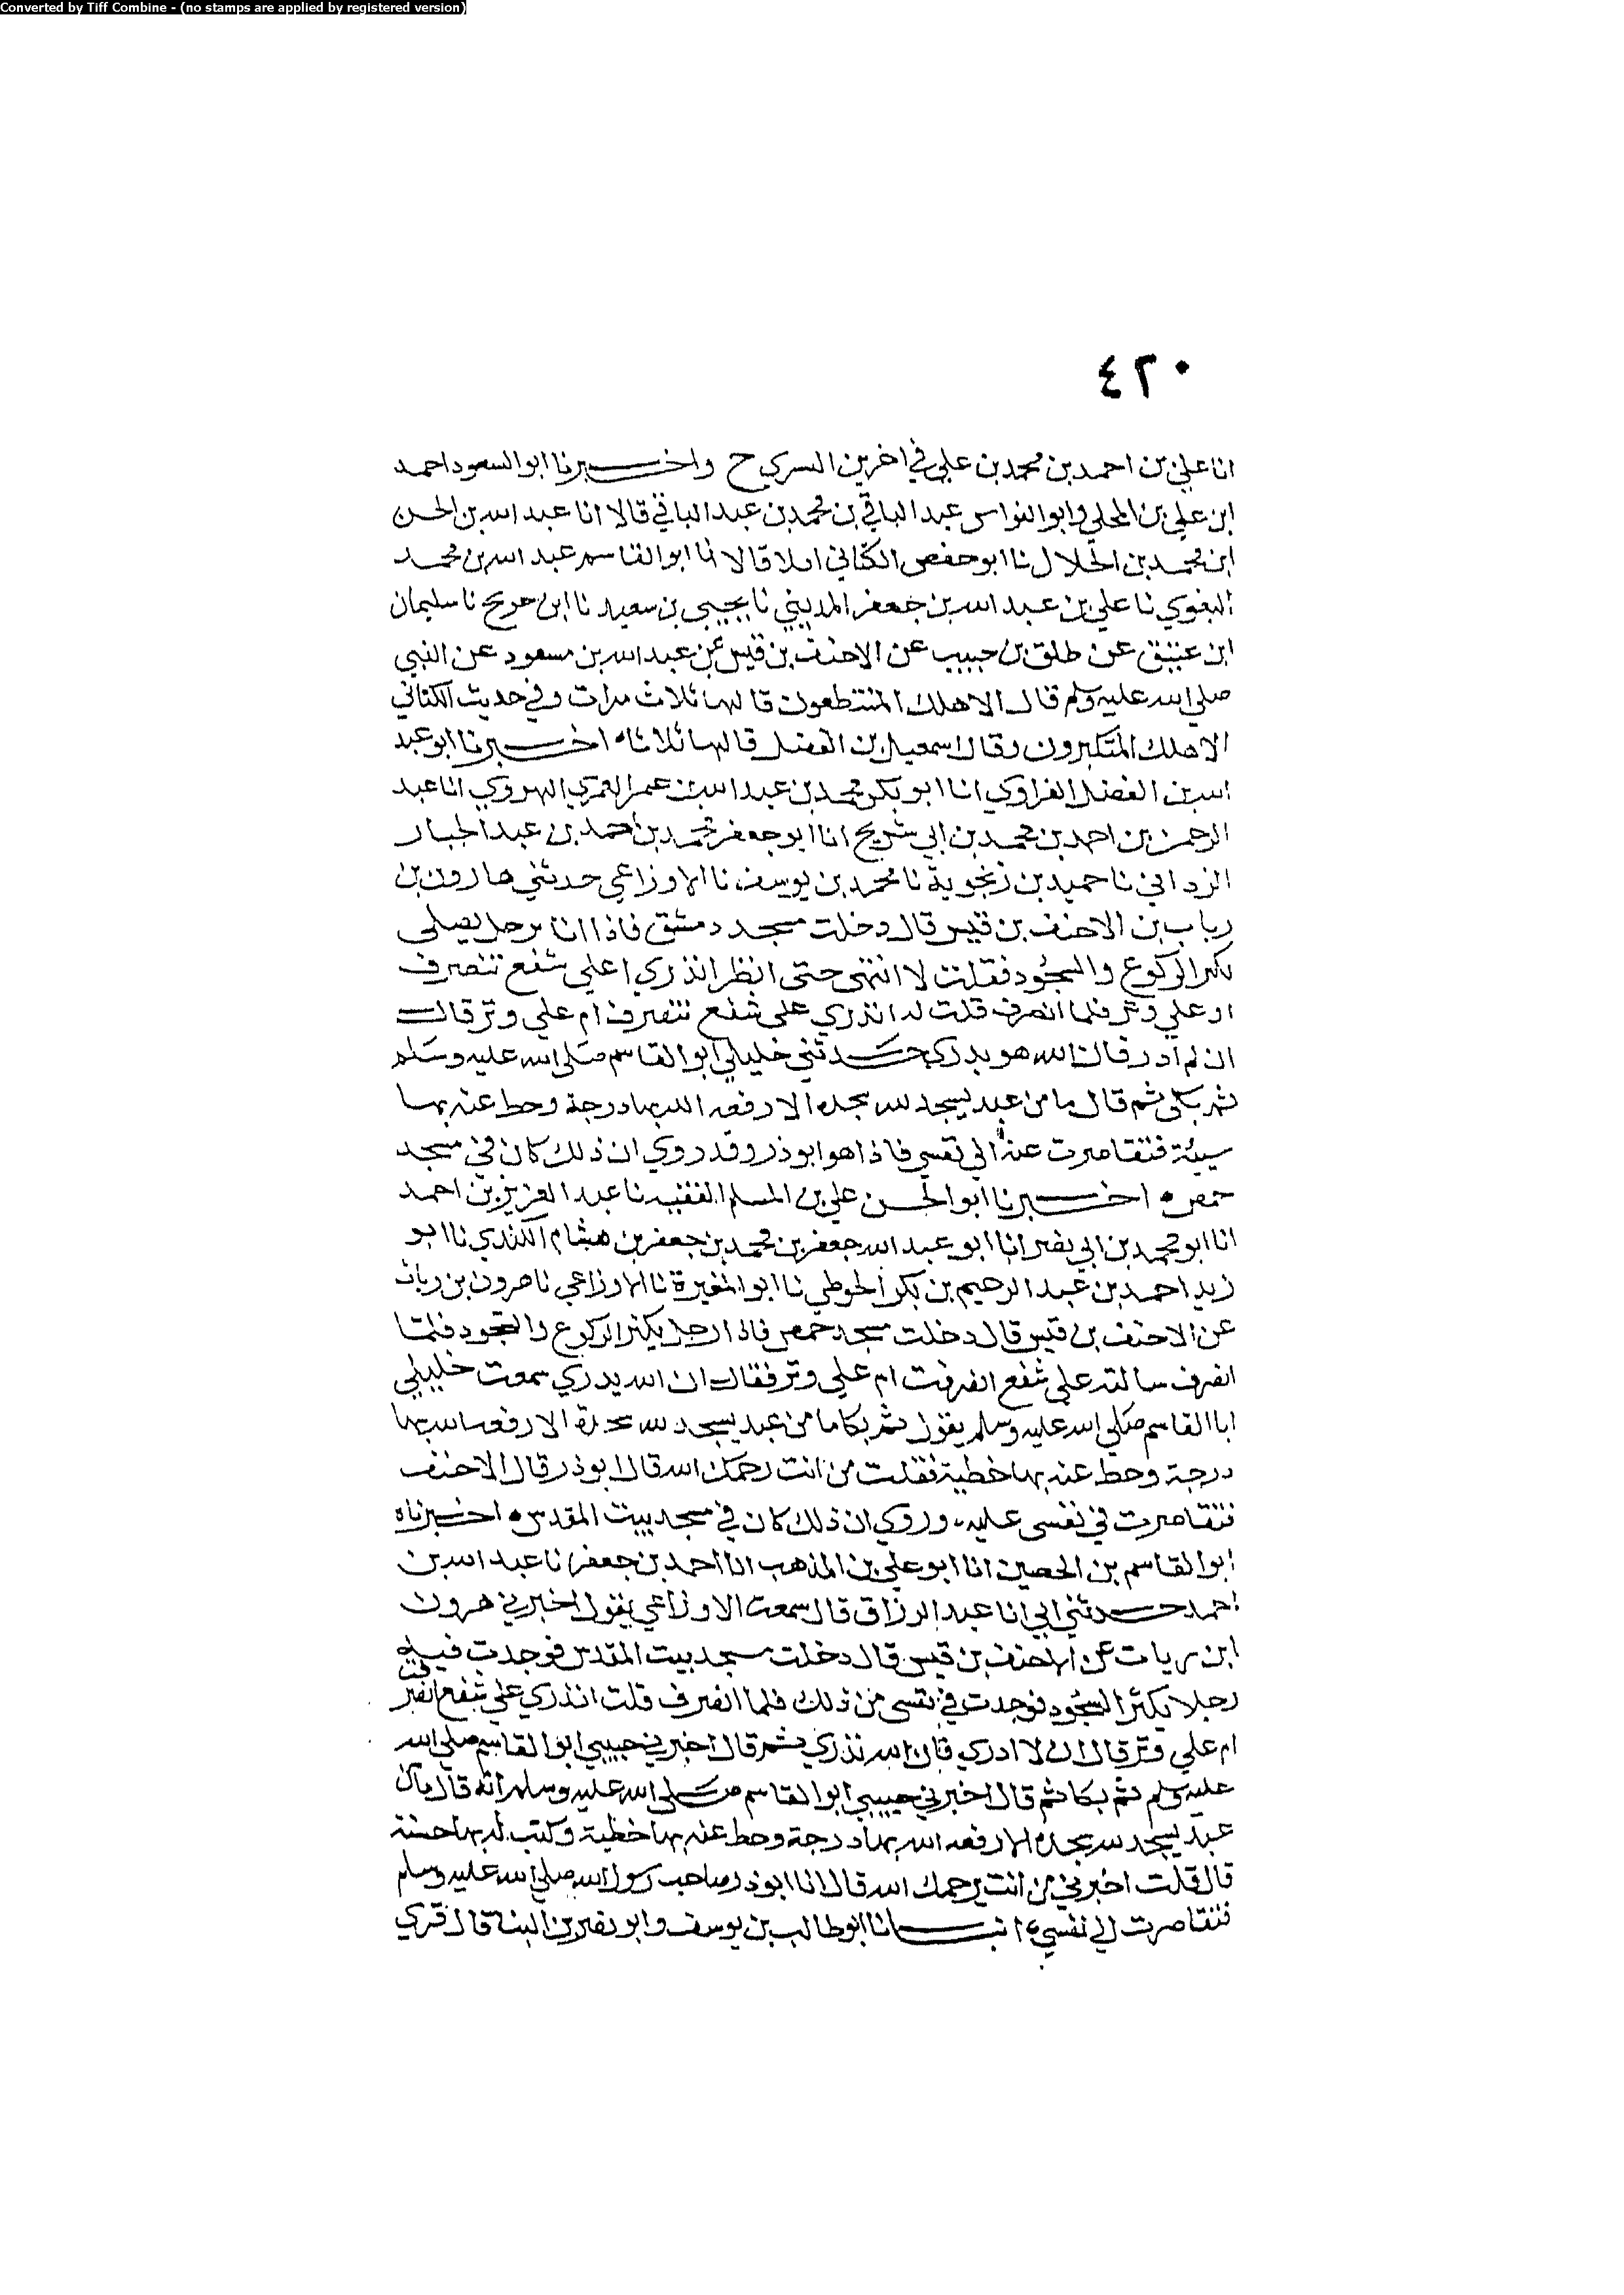 Converted by Tiff Combine - (no stamps are applied by registered version)
٤٢٠
انا علي بن احمد بن محمد بن علي في اخرين السري ح واخـــبرنا ابو السعود احمد
ابن علي بن المحلي وابو النواس عبد الباقي بن محمد بن عبد الباقي قالا انا عبد الله بن الحسن
ابن محمد بن الخلال نا ابو حفص الكتاني املا قالا نا ابو القاسم عبد الله بن محمد
البغوي نا علي بن عبد الله بن جعفر المديني نا يحيى بن سعيد نا ابن جريح نا سليمان
ابن عتيق عن طلق بن حبيب عن الاحنف بن قيس عن عبد الله بن مسعود عن النبي
صلى الله عليه وسلم قال الا هلك المتنطعون قالها ثلاث مرات وفي حديث الكتاني
الا هلك المتكبرون وقال اسمعيل بن الفضل قالها ثلاثا • اخـــبرنا ابو عبد
الله بن الفضل الفراوي انا ابو بكر محمد بن عبد الله بن عمر العمري الهروي انا عبد
الرحمن بن احمد بن محمد بن ابي شريح انا ابو جعفر محمد بن احمد بن عبد الجبار
الرذاني نا حميد بن زنجوية نا محمد بن يوسف نا الاوزاعي حدثني هارون بن
رياب بن الاحنف بن قيس قال دخلت مسجد دمشق فاذا انا برجل يصلي
يكثر الركوع والسجود فقلت لا انتهى حتى انظر اتدري اعلي شفع تنصرف
او علي وتر فلما انصرف قلت له اتدري على شفع تنصرف ام علي وتر قال
ان لم ادر فان الله هو يدري حـــدثني خليلي ابو القاسم صلى الله عليه وسلم
ثم بكى ثم قال ما من عبد يسجد لله سجدة الا رفعه الله بها درجة وحط عنه بها
سيئة فتقاصرت عنه الي نفسي فاذا هو ابو ذر وقد روي ان ذلك كان في مسجد
حمص • اخـــبرنا ابو الحسن علي بن المسلم الفقيه نا عبد العزيز بن احمد
انا ابو محمد بن ابي نصر انا ابو عبد الله جعفر بن محمد بن جعفر بن هشام الكندي نا ابو
زيد احمد بن عبد الرحيم بن بكر الحوطي نا ابو المغيرة نا الاوزاعي نا هرون بن رياب
عن الاحنف بن قيس قال دخلت مسجد حمص فاذا رجل يكثر الركوع والسجود فلما
انصرف سالته على شفع انصرفت ام علي وتر فقال ان الله يدري سمعت خليلي
ابا القاسم صلى الله عليه وسلم يقول ثم بكا ما من عبد يسجد لله سجدة الا رفعه الله بها
درجة وحط عنه بها خطية فقلت من انت رحمك الله قال ابو ذر قال الاحنف
فتقاصرت في نفسي عليه، وروي ان ذلك كان في مسجد بيت المقدس • اخـــبرناه
ابو القاسم بن الحصين انا ابو علي بن المذهب انا احمد بن جعفر نا عبد الله بن
احمد حـــدثني ابي انا عبد الرزاق قال سمعت الاوزاعي يقول اخبرني هرون
ابن رياب عن الاحنف بن قيس قال دخلت مسجد بيت المقدس فوجدت فيه
رجلا يكثر السجود فوجدت في نفسي من ذلك فلما انصرف قلت اتدري علي شفع انصرفت
ام علي وتر قال ان لا ادري فان الله يدري ثم قال اخبرني حبيبي ابو القاسم صلى الله
عليه وسلم ثم بكا ثم قال اخبرني حبيبي ابو القاسم صلى الله عليه وسلم انه قال ما من
عبد يسجد لله سجدة الا رفعه الله بها درجة وحط عنه بها خطية وكتب له بها حسنة
قال قلت اخبرني من انت يرحمك الله قال انا ابو ذر صاحب رسول الله صلى الله عليه وسلم
فتقاصرت الي نفسي، انبـــانا ابو طالب بن يوسف وابو نصر بن البنا قال قري